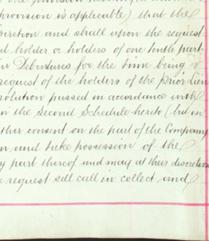 provision is applicable) that the
discretion and shall upon the request
holder or holders of one tenth part
Debentures for the time being
request of the holders of the Prior Lien
resolution passed in accordance with
in the Second Schedule hereto (but in
consent on the part of the Company
and take possession of the
part thereof and may at their discretion
request sell call in collect and